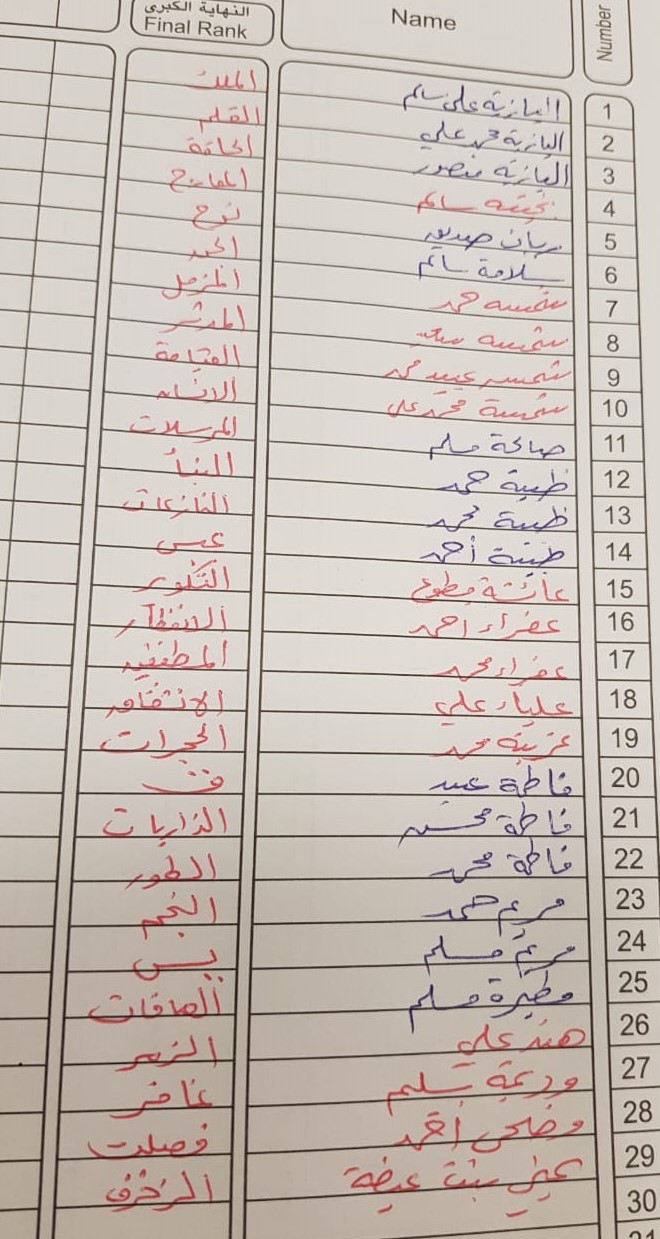 Number Name النهاية الكبرى Final Rank
1 اليازية علي سالم الملك
2 اليازية محمد علي القلم
3 اليازية منصور الحاقة
4 بخيته سالم المعارج
5 ريان صديق نوح
6 سلامة سالم الجن
7 شمسه حمد المزمل
8 شمسه سعيد المدثر
9 شمسه عبيد محمد القيامة
10 شمسة محمد علي الانسان
11 صالحة مسلم المرسلات
12 ظبية حمد النبأ
13 ظبية محمد النازعات
14 ظبية أحمد عبس
15 عائشة مطوع التكوير
16 عفراء احمد الانفطار
17 عفراء محمد المطففين
18 علياء علي الانشقاق
19 محمد الحجرات
20 فاطمة عبيد ق
21 فاطمة محسن الذاريات
22 فاطمة محمد الطور
23 مريم حمد النجم
24 مريم مسلم يس
25 مطيرة مسلم الصافات
26 هند علي الزمر
27 وديمة سليم غافر
28 وضحى أحمد فصلت
29 بنت عيضة الزخرف
30
31